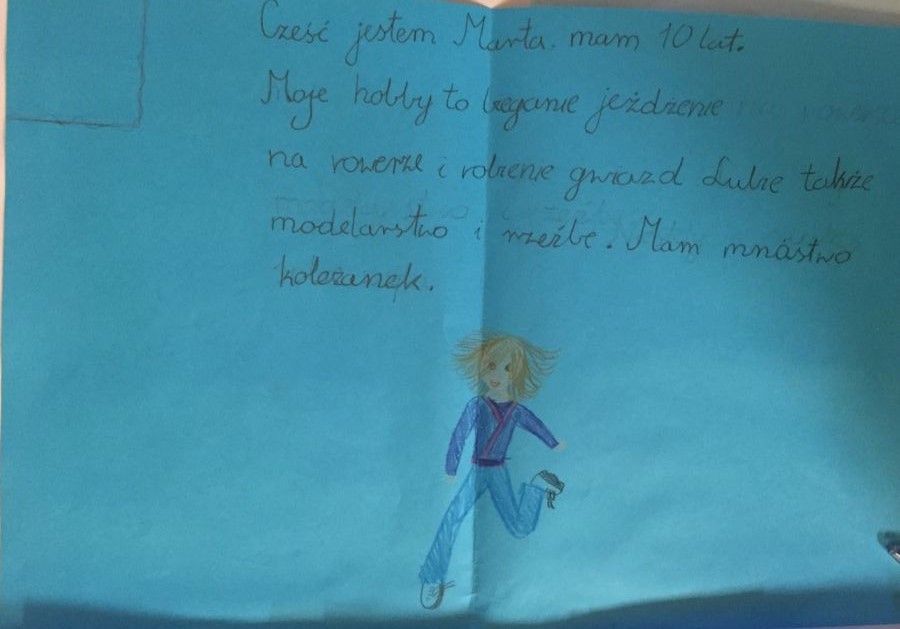 Cześć jestem Marta. mam 10 lat.
Moje hobby to bieganie jeżdżenie
na rowerze i robienie gwiazd Lubie także
modelarstwo i rzeźbe. Mam mnóstwo
koleżanek.